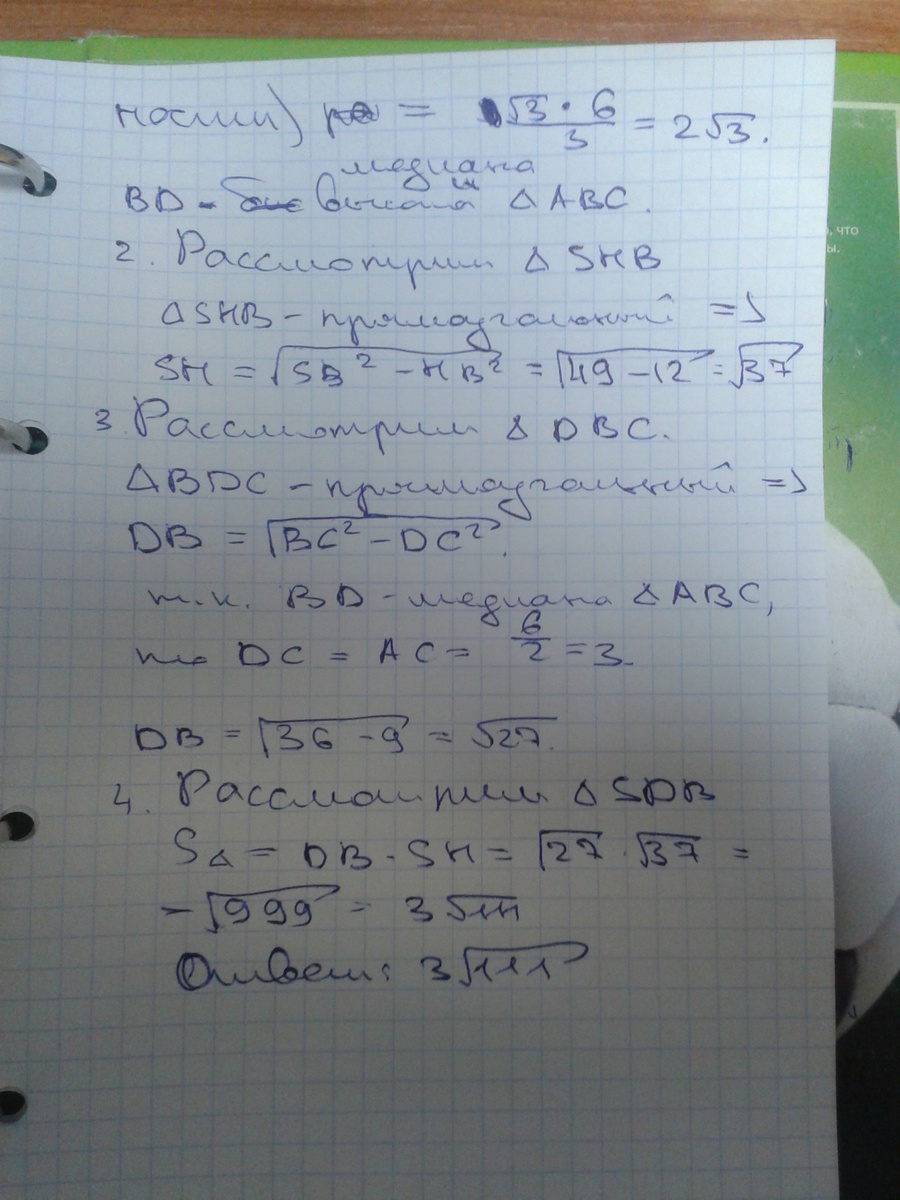 ности) = √3 · 6 / 3 = 2√3.
медиана
BD - и высота △ ABC.
2. Рассмотрим △ SHB
△SHB - прямоугольный =>
SH = √SB² - HB² = √49 - 12 = √37
3. Рассмотрим △ DBC.
△BDC - прямоугольный =>
DB = √BC² - DC².
т.к. BD - медиана △ABC,
то DC = AC = 6/2 = 3.
DB = √36 - 9 = √27.
4. Рассмотрим △ SDB
S△ = DB · SH = √27 · √37 =
= √999 = 3√111
Ответ: 3√111
что
ы.